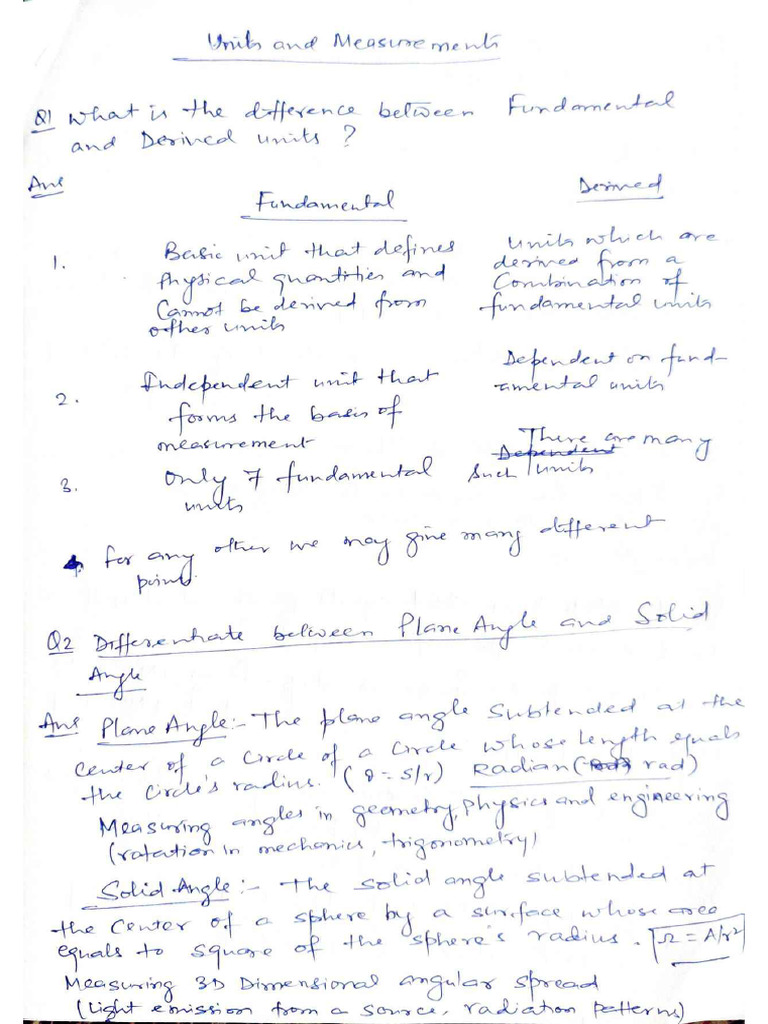 Units and Measurements
Q1 What is the difference between Fundamental
and Derived units ?
Ans
Fundamental Derived
1. Basic unit that defines
Physical quantities and
Cannot be derived from
other units
Units which are
derived from a
Combination of
fundamental units
2. Independent unit that
forms the basis of
measurement
Dependent on fund-
amental units
3. Only 7 fundamental
units
There are many
Dependent
Such units
for any other we may give many different
points.
Q2 Differentiate between Plane Angle and Solid
Angle
Ans Plane Angle:- The plane angle subtended at the
center of a circle of a circle whose length equals
the circle's radius. (θ = S/r) Radian ( rad)
Measuring angles in geometry, physics and engineering
(ratation in mechanics, trigonometry)
Solid Angle:- The solid angle subtended at
the center of a sphere by a surface whose area
equals to square of the sphere's radius. Ω = A/r²
Measuring 3D Dimensional angular spread
(Light emission from a source, radiation patterns)